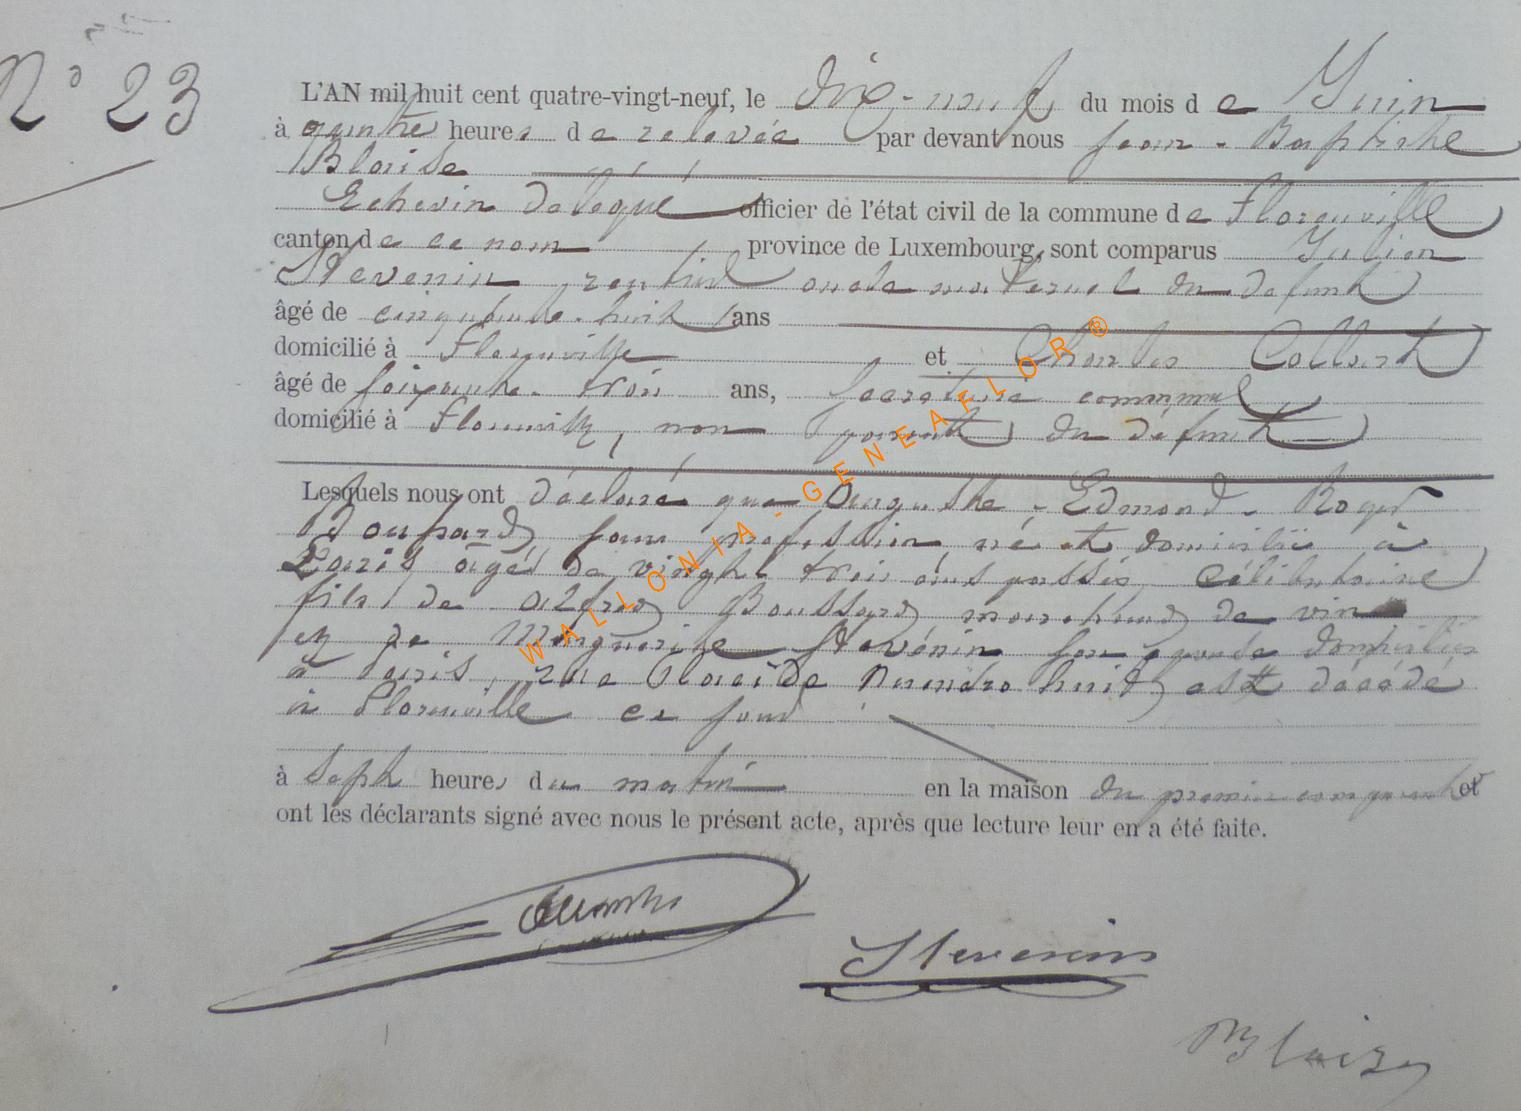 N° 23
L'AN mil huit cent quatre-vingt-neuf, le Dix-neuf du mois de Juin
à quatre heures de relevée par devant nous Jean-Baptiste
Blaise
Echevin délégué officier de l'état civil de la commune de Florenville
canton de ce nom province de Luxembourg, sont comparus Julien
Stevenin, rentier oncle maternel du défunt
âgé de cinquante-huit ans
domicilié à Florenville et Charles
âgé de soixante-trois ans, secrétaire communal
domicilié à Florenville, non parent du défunt
Lesquels nous ont déclaré que Auguste-Edmond-Roger
Boussard sans profession, né et domicilié à
Paris âgé de vingt-trois ans passés, célibataire
fils de Alfred Boussard, marchand de vin
et de Marguerite Stevénin son épouse domiciliés
à Paris, rue numéro huit, est décédé
à Florenville ce jour
à sept heures du matin en la maison du premier comparant et
ont les déclarants signé avec nous le présent acte, après que lecture leur en a été faite.
Stevenin
Blaise
WALLONIA-GENEAFLOR®